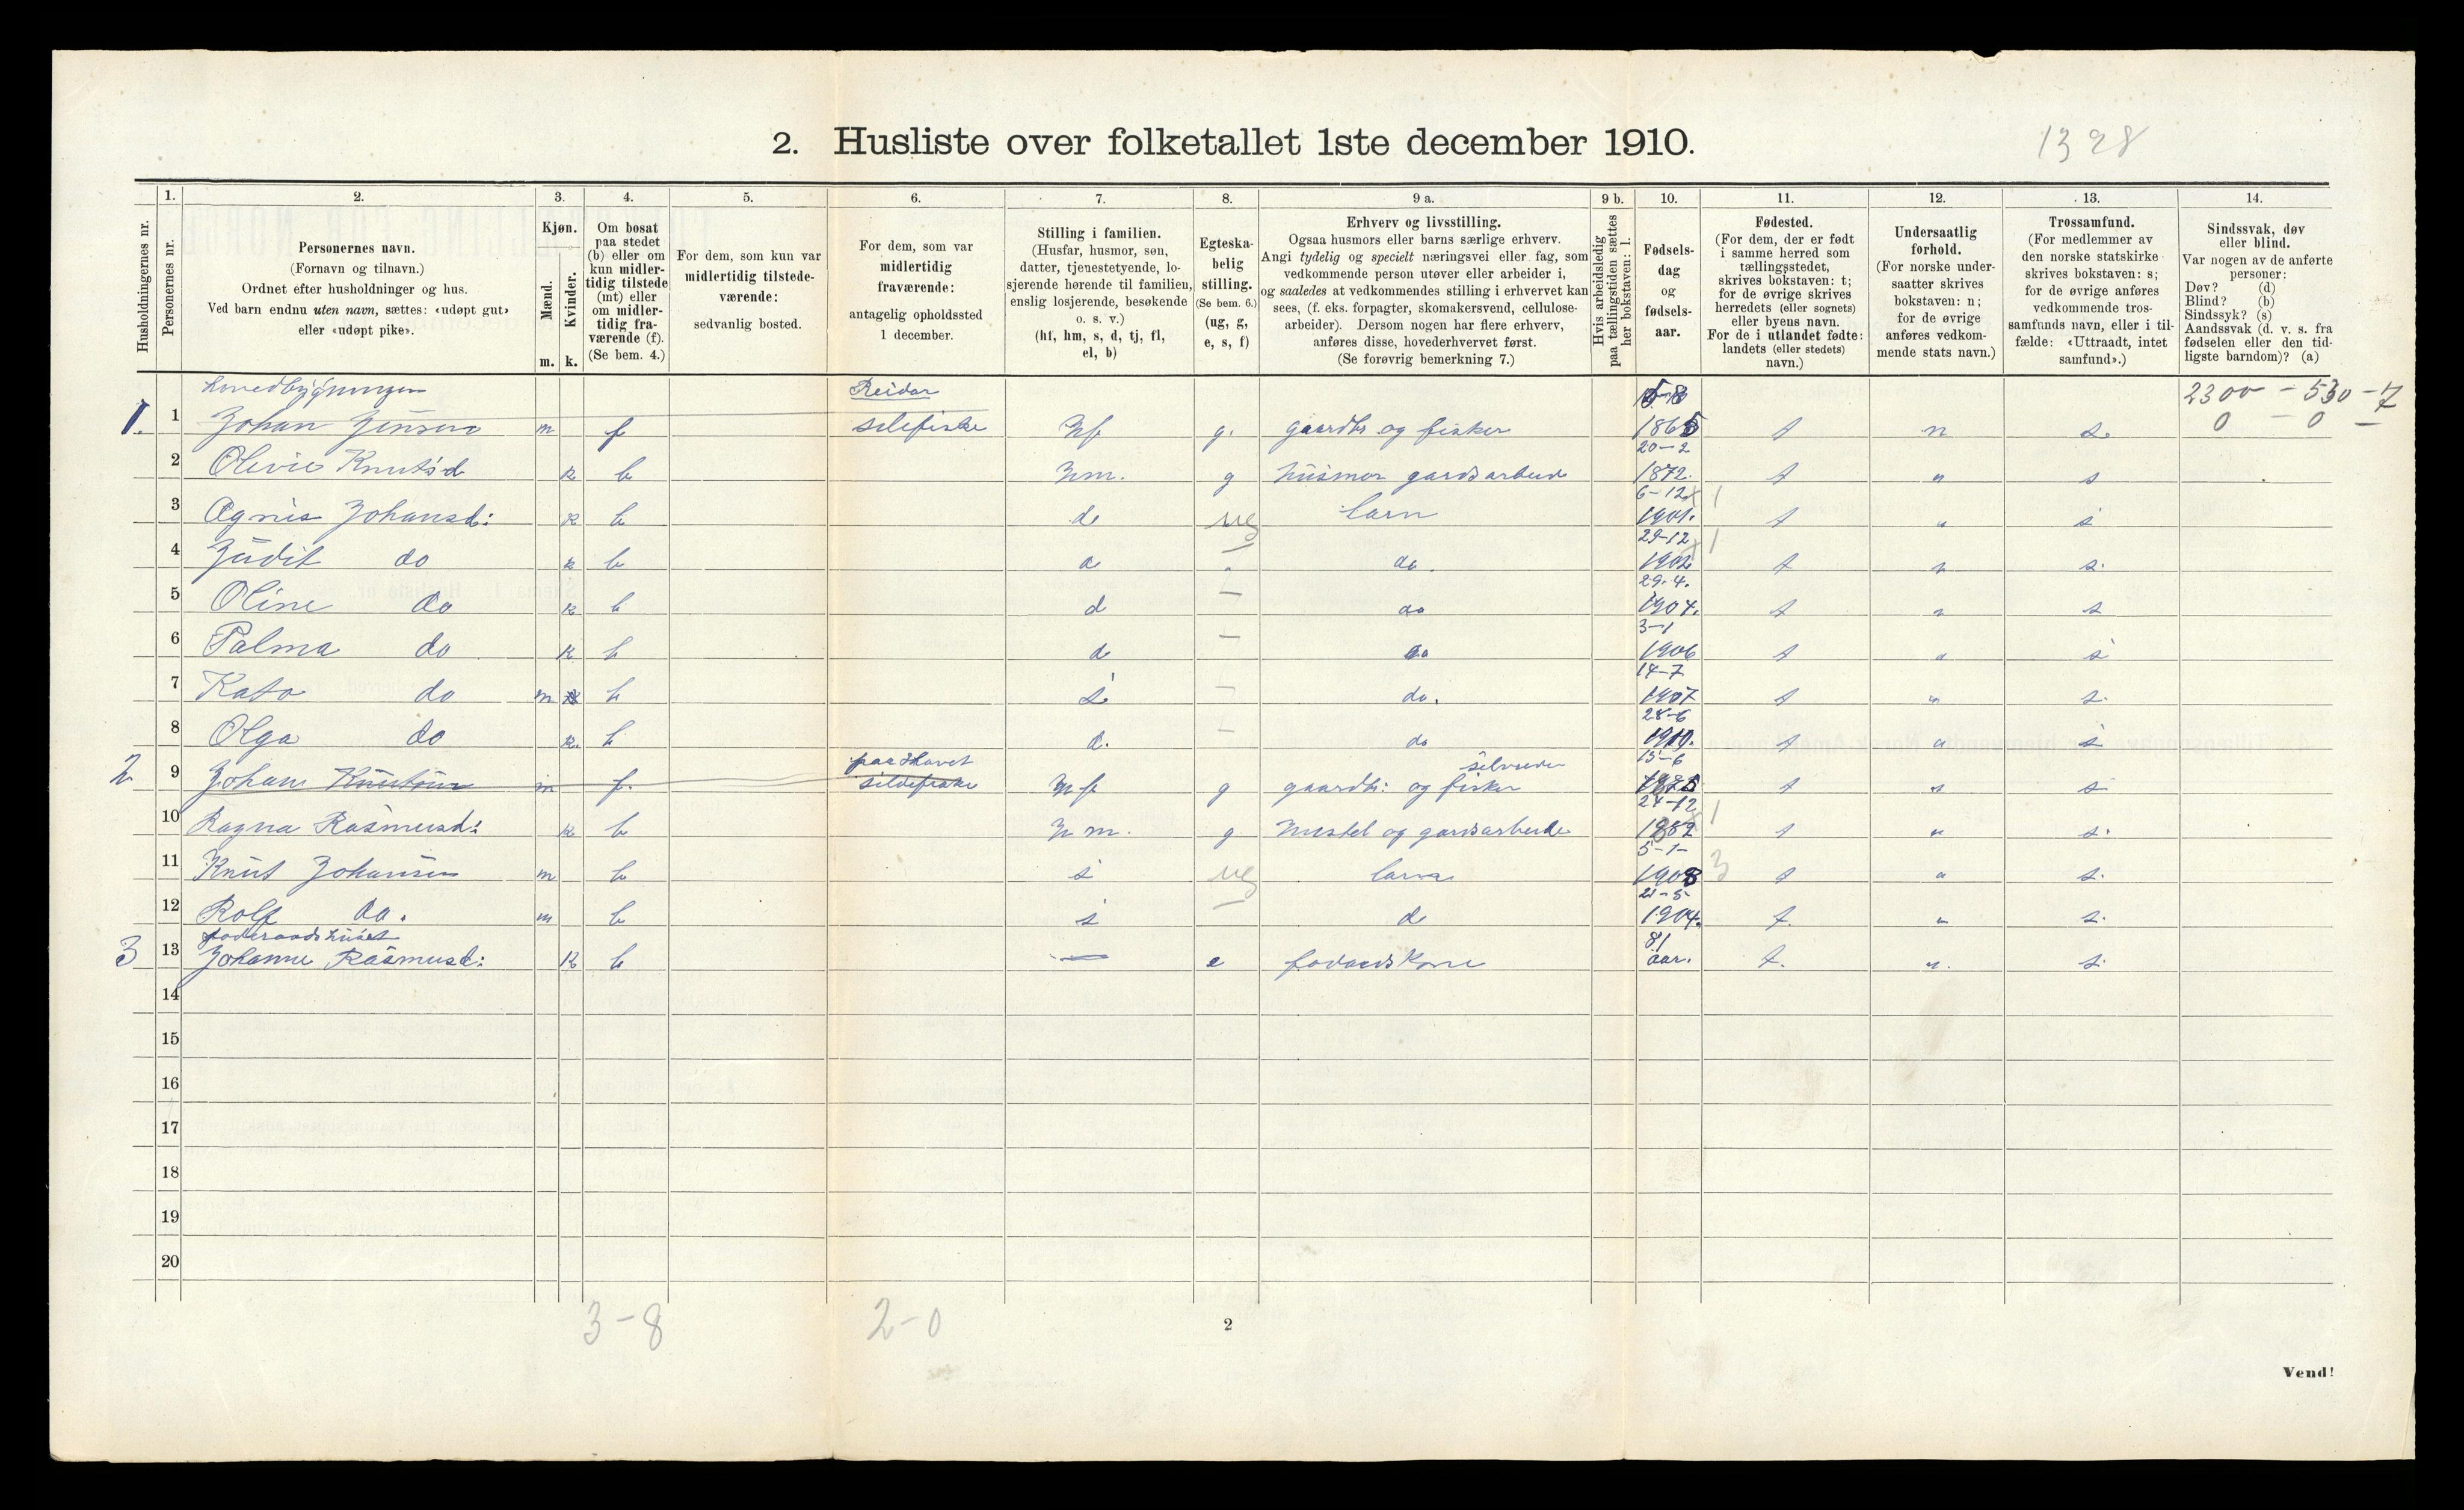 2. Husliste over folketallet 1ste december 1910.
1328
Husholdningernes nr.
1. Personernes nr.
2. Personernes navn.
(Fornavn og tilnavn.)
Ordnet efter husholdninger og hus.
Ved barn endnu uten navn, sættes: «udøpt gut»
eller «udøpt pike».
3. Kjøn.
Mænd. m.
Kvinder. k.
4. Om bosat
paa stedet
(b) eller om
kun midler-
tidig tilstede
(mt) eller
om midler-
tidig fra-
værende (f).
(Se bem. 4.)
5. For dem, som kun var
midlertidig tilstede-
værende:
sedvanlig bosted.
6. For dem, som var
midlertidig
fraværende:
antagelig opholdssted
1 december.
7. Stilling i familien.
(Husfar, husmor, søn,
datter, tjenestetyende, lo-
sjerende hørende til familien,
enslig losjerende, besøkende
o. s. v.)
(hf, hm, s, d, tj, fl,
el, b)
8. Egteska-
belig
stilling.
(Se bem. 6.)
(ug, g,
e, s, f)
9 a. Erhverv og livsstilling.
Ogsaa husmors eller barns særlige erhverv.
Angi tydelig og specielt næringsvei eller fag, som
vedkommende person utøver eller arbeider i,
og saaledes at vedkommendes stilling i erhvervet kan
sees, (f. eks. forpagter, skomakersvend, cellulose-
arbeider). Dersom nogen har flere erhverv,
anføres disse, hovederhvervet først.
(Se forøvrig bemerkning 7.)
9 b. Hvis arbeidsledig
paa tællingstiden sættes
her bokstaven: l.
10. Fødsels-
dag
og
fødsels-
aar.
11. Fødested.
(For dem, der er født
i samme herred som
tællingsstedet,
skrives bokstaven: t;
for de øvrige skrives
herredets (eller sognets)
eller byens navn.
For de i utlandet fødte:
landets (eller stedets)
navn.)
12. Undersaatlig
forhold.
(For norske under-
saatter skrives
bokstaven: n;
for de øvrige
anføres vedkom-
mende stats navn.)
13. Trossamfund.
(For medlemmer av
den norske statskirke
skrives bokstaven: s;
for de øvrige anføres
vedkommende tros-
samfunds navn, eller i til-
fælde: «Uttraadt, intet
samfund».)
14. Sindssvak, døv
eller blind.
Var nogen av de anførte
personer:
Døv? (d)
Blind? (b)
Sindssyk? (s)
Aandssvak (d. v. s. fra
fødselen eller den tid-
ligste barndom)? (a)
hovedbygningen Reidar 2300 - 530 - 7
1. 1 Johan Jensen m f sildefiske hf g. gaardbr og fisker 1865 t n s. 0 - 0 -
2 Olivie Knutsd k b hm. g husmor gardsarbeide 20-2 1872. t n s
3 Agnes Johansd: k b d ug barn 6-12 1901. t n s
4 Judit do k b d - do. 29-12 1902 t n s.
5 Oline do k b d - do 29.4. 1904. t n s
6 Palma do k b d - do 3-1 1906 t n s
7 Kato do m b s - do. 14-7 1907 t n s.
8 Olga do k. b d. - do 28-6 1910. t n s
paa Havet selveier
2 9 Johan Knutsen m f. sildefiske hf g gaardbr: og fisker 15-6 t n s
10 Ragna Rasmusd: k b hm. g husstel og gardsarbeide 24-12 1882 t n s.
11 Knut Johansen m b s ug barn 5-1- 1908 t n s.
12 Rolf do. m b s - do 21-5 1904. t. n s.
foderaadshuset
3 13 Johanne Rasmusd: k b - e 81 aar. t. n. s.
14
15
16
17
18
19
20
3-8 2-0
2
Vend!